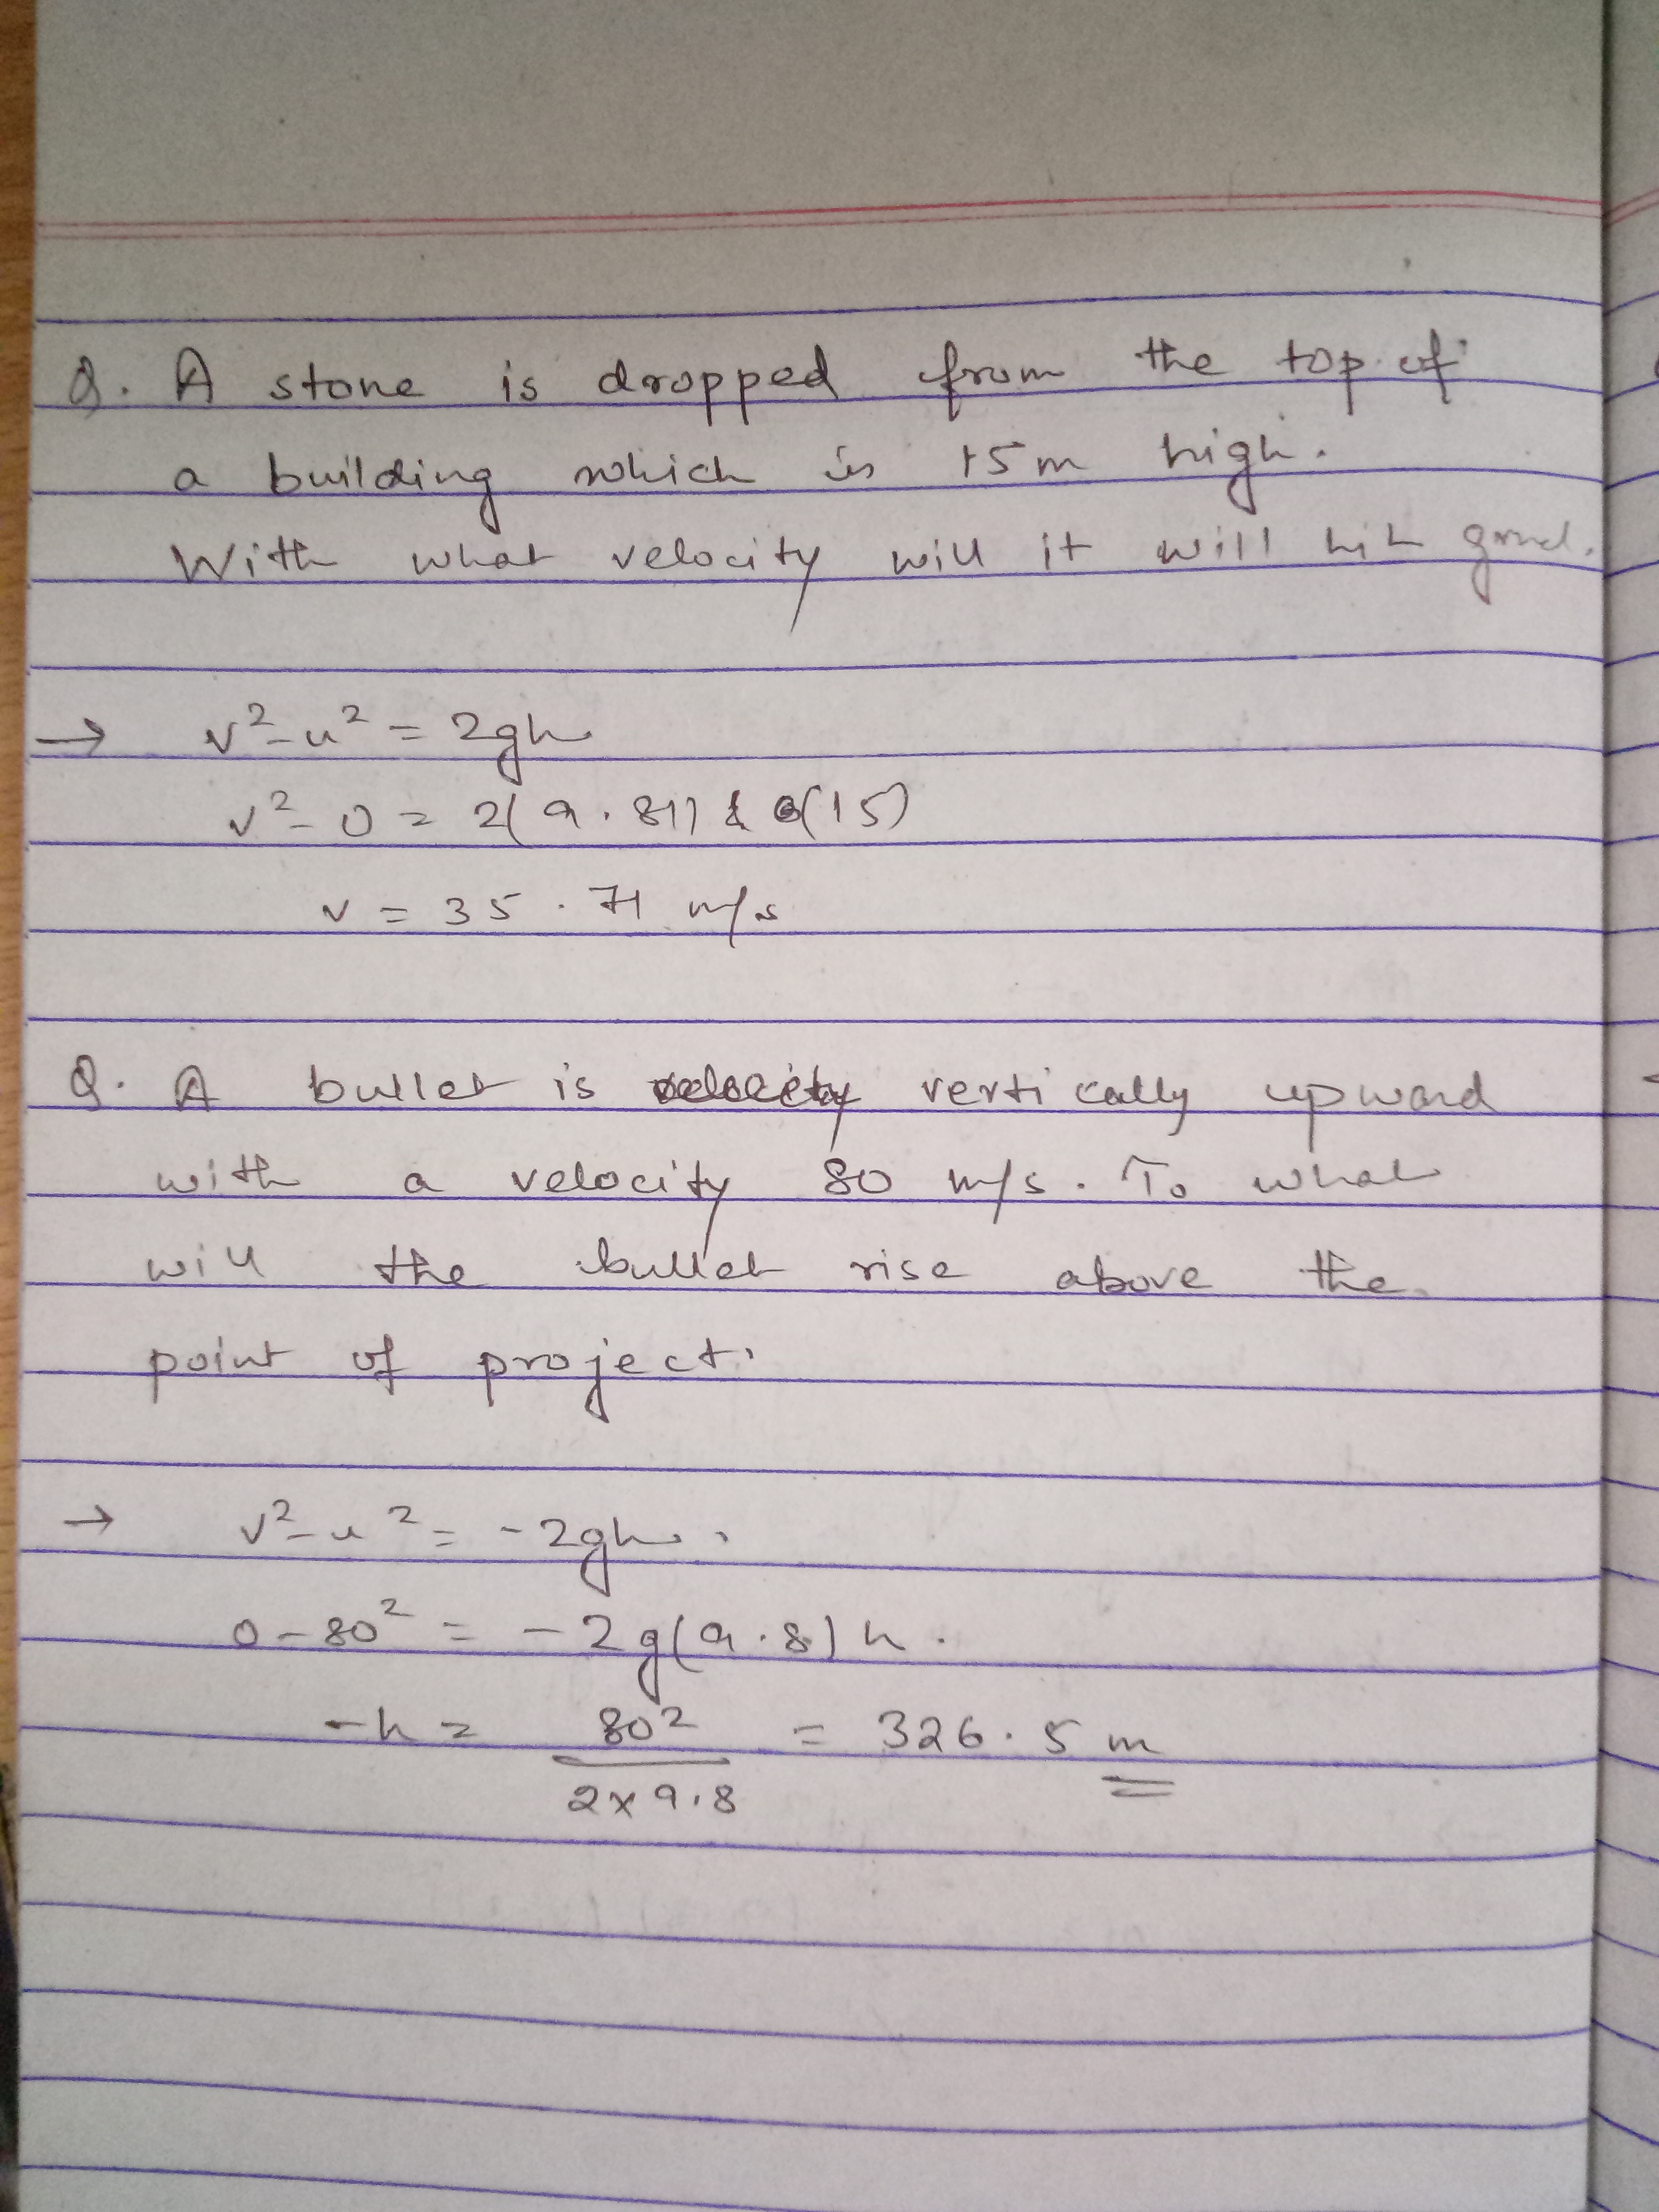 Q. A stone is dropped from the top of
a building which is 15m high.
With what velocity will it will hit
→ v² - u² = 2gh
v² - 0 = 2(9.81) (15)
v = 35.71 m/s
Q. A bullet is velocity vertically upward
with a velocity 80 m/s. To what
will the bullet rise above the
point of project.
→ v² - u² = -2gh.
0 - 80² = -2g(9.8) h.
-h = 80² / 2×9.8 = 326.5 m